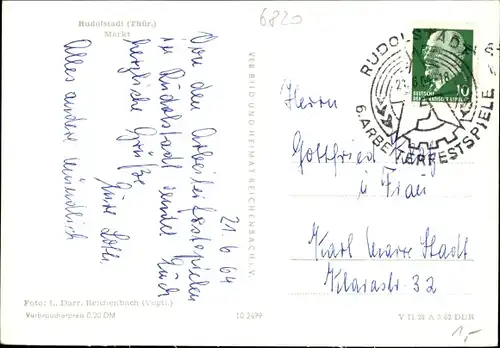 6820
Rudolstadt (Thür.)
Markt
21.6.64
Von den Arbeiterfestspielen
in Rudolstadt sendet Euch
herzliche Grüße
Eure Lotte.
Alles andere mündlich
VEB BILD UND HEIMAT REICHENBACH i. V.
RUDOLSTADT
6. ARBEITERFESTSPIELE
10
Herrn
Gottfried
u Frau
Karl Marx Stadt
Klarastr. 32
Foto: L. Darr, Reichenbach (Vogtl.)
Verbraucherpreis 0,20 DM
10 2499
DDR
1,-